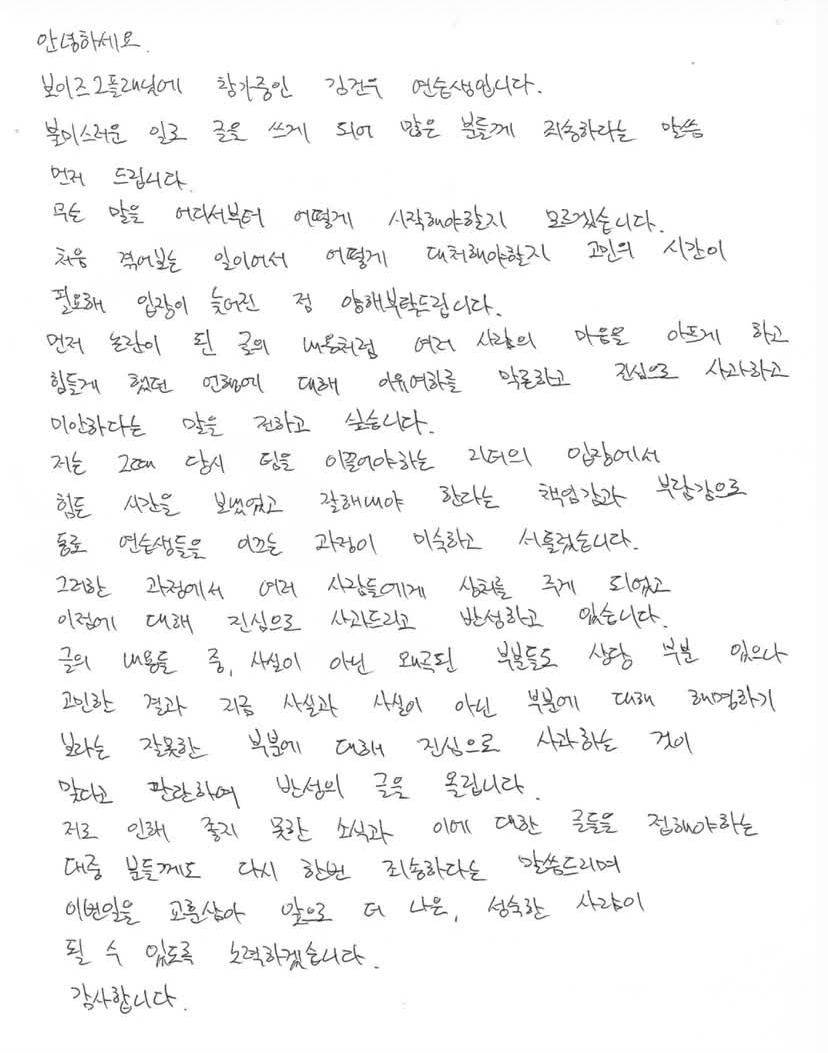 안녕하세요.
보이즈2플래닛에 참가중인 김건우 연습생입니다.
불미스러운 일로 글을 쓰게 되어 많은 분들께 죄송하라는 말씀
먼저 드립니다.
무슨 말을 어디서부터 어떻게 시작해야할지 모르겠습니다.
처음 겪어보는 일이어서 어떻게 대처해야할지 고민의 시간이
필요해 입장이 늦어진 점 양해부탁드립니다.
먼저 논란이 된 글의 내용처럼 여러 사람의 마음을 아프게 하고
힘들게 했던 언행에 대해 이유여하를 막론하고 진심으로 사과하고
미안하다는 말을 전하고 싶습니다.
저는 그때 당시 팀을 이끌어야하는 리더의 입장에서
힘든 시간을 보냈었고 잘해내야 한다는 책임감과 부담감으로
동료 연습생들을 이끄는 과정이 미숙하고 서툴렀습니다.
그러한 과정에서 여러 사람들에게 상처를 주게 되었고
이점에 대해 진심으로 사과드리고 반성하고 있습니다.
글의 내용들 중, 사실이 아닌 왜곡된 부분들도 상당 부분 있으나
고민한 결과 지금 사실과 사실이 아닌 부분에 대해 해명하기
보라는 잘못한 부분에 대해 진심으로 사과하는 것이
맞다고 판단하여 반성의 글을 올립니다.
저로 인해 좋지 못한 소식과 이에 대한 글들을 접해야하는
대중 분들께도 다시 한번 죄송하다는 말씀드리며
이번일을 교훈삼아 앞으로 더 나은, 성숙한 사람이
될 수 있도록 노력하겠습니다.
감사합니다.